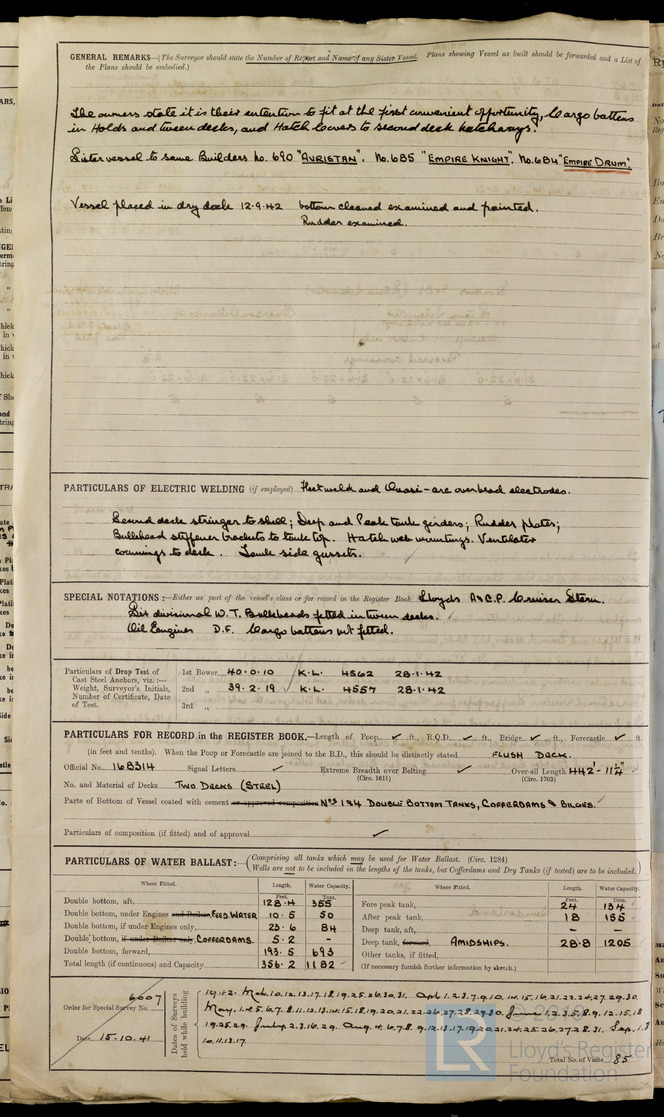 GENERAL REMARKS—(The Surveyor should state the Number of Report and Name of any Sister Vessel. Plans showing Vessel as built should be forwarded and a List of
the Plans should be embodied.)
The owners state it is their intention to fit at the first convenient opportunity, Cargo battens
in Holds and tween decks, and Hatch Covers to second deck hatchways.
Sister vessel to same Builders No. 690 "AURISTAN". No. 685 "EMPIRE KNIGHT". No. 684 "EMPIRE DRUM".
Vessel placed in dry dock 12.9.42 bottom cleaned examined and painted.
Rudder examined.
PARTICULARS OF ELECTRIC WELDING (if employed) Fleetweld and Quasi-arc overhead electrodes.
Second deck stringer to shell; Deep and Peak tank girders; Rudder plates;
Bulkhead stiffener brackets to tank top. Hatch web mountings. Ventilator
coamings to deck. Tank side gussets.
SPECIAL NOTATIONS:—Either as part of the vessel's class or for record in the Register Book. Lloyds A & C.P. Cruiser Stern.
Six divisional W.T. Bulkheads fitted in tween decks.
Oil Engines D.F. Cargo battens not fitted.
Particulars of Drop Test of
Cast Steel Anchors, viz.:—
Weight, Surveyor's Initials,
Number of Certificate, Date
of Test.
1st Bower 40.0.10 K.L. 4562 28.1.42
2nd „ 39.2.19 K.L. 4557 28.1.42
3rd „
PARTICULARS FOR RECORD in the REGISTER BOOK.—Length of Poop ✓ ft., R.Q.D. ✓ ft., Bridge ✓ ft., Forecastle ✓ ft.
(in feet and tenths). When the Poop or Forecastle are joined to the B.D., this should be distinctly stated FLUSH DECK.
Official No. 168314 Signal Letters ✓ Extreme Breadth over Belting ✓ Over-all Length 442'-11¼"
(Circ. 1611) (Circ. 1703)
No. and Material of Decks TWO DECKS (STEEL)
Parts of Bottom of Vessel coated with cement or approved composition Nos 1 & 4 DOUBLE BOTTOM TANKS, COFFERDAMS & BILGES.
Particulars of composition (if fitted) and of approval ✓
PARTICULARS OF WATER BALLAST:—(Comprising all tanks which may be used for Water Ballast. (Circ. 1284)
Wells are not to be included in the lengths of the tanks, but Cofferdams and Dry Tanks (if tested) are to be included.)
Where Fitted. Length. Water Capacity. Where Fitted. Length. Water Capacity.
Feet. Tons. Feet. Tons.
Double bottom, aft, 128.4 355 Fore peak tank, 24 134
Double bottom, under Engines and Boilers FEED WATER 10.5 50 After peak tank, 18 155
Double bottom, if under Engines only, 23.6 84 Deep tank, aft, - -
Double bottom, if under Boilers only, COFFERDAMS. 5.2 - Deep tank, forward, AMIDSHIPS. 28.8 1205
Double bottom, forward, 193.5 693 Other tanks, if fitted,
Total length (if continuous) and Capacity 356.2 1182 (If necessary furnish further information by sketch.)
Order for Special Survey No. 6007
Date 15.10.41
Dates of Surveys held while building
1942. Mch. 10.12.13.17.18.19.25.26.30.31. Apl. 1.2.3.7.9.10.14.15.16.21.22.24.27.29.30.
May. 1.4.5.6.7.8.11.12.13.14.15.18.19.20.21.22.26.27.28.29.30. June 1.2.3.5.8.9.12.15.18
19.25.29. July 2.3.16.29. Aug. 4.6.7.8.9.12.13.17.19.20.21.24.25.26.27.28.31. Sep. 1.8
10.11.13.17.
Total No. of Visits 85
© 2019
LR Lloyd's Register
Foundation